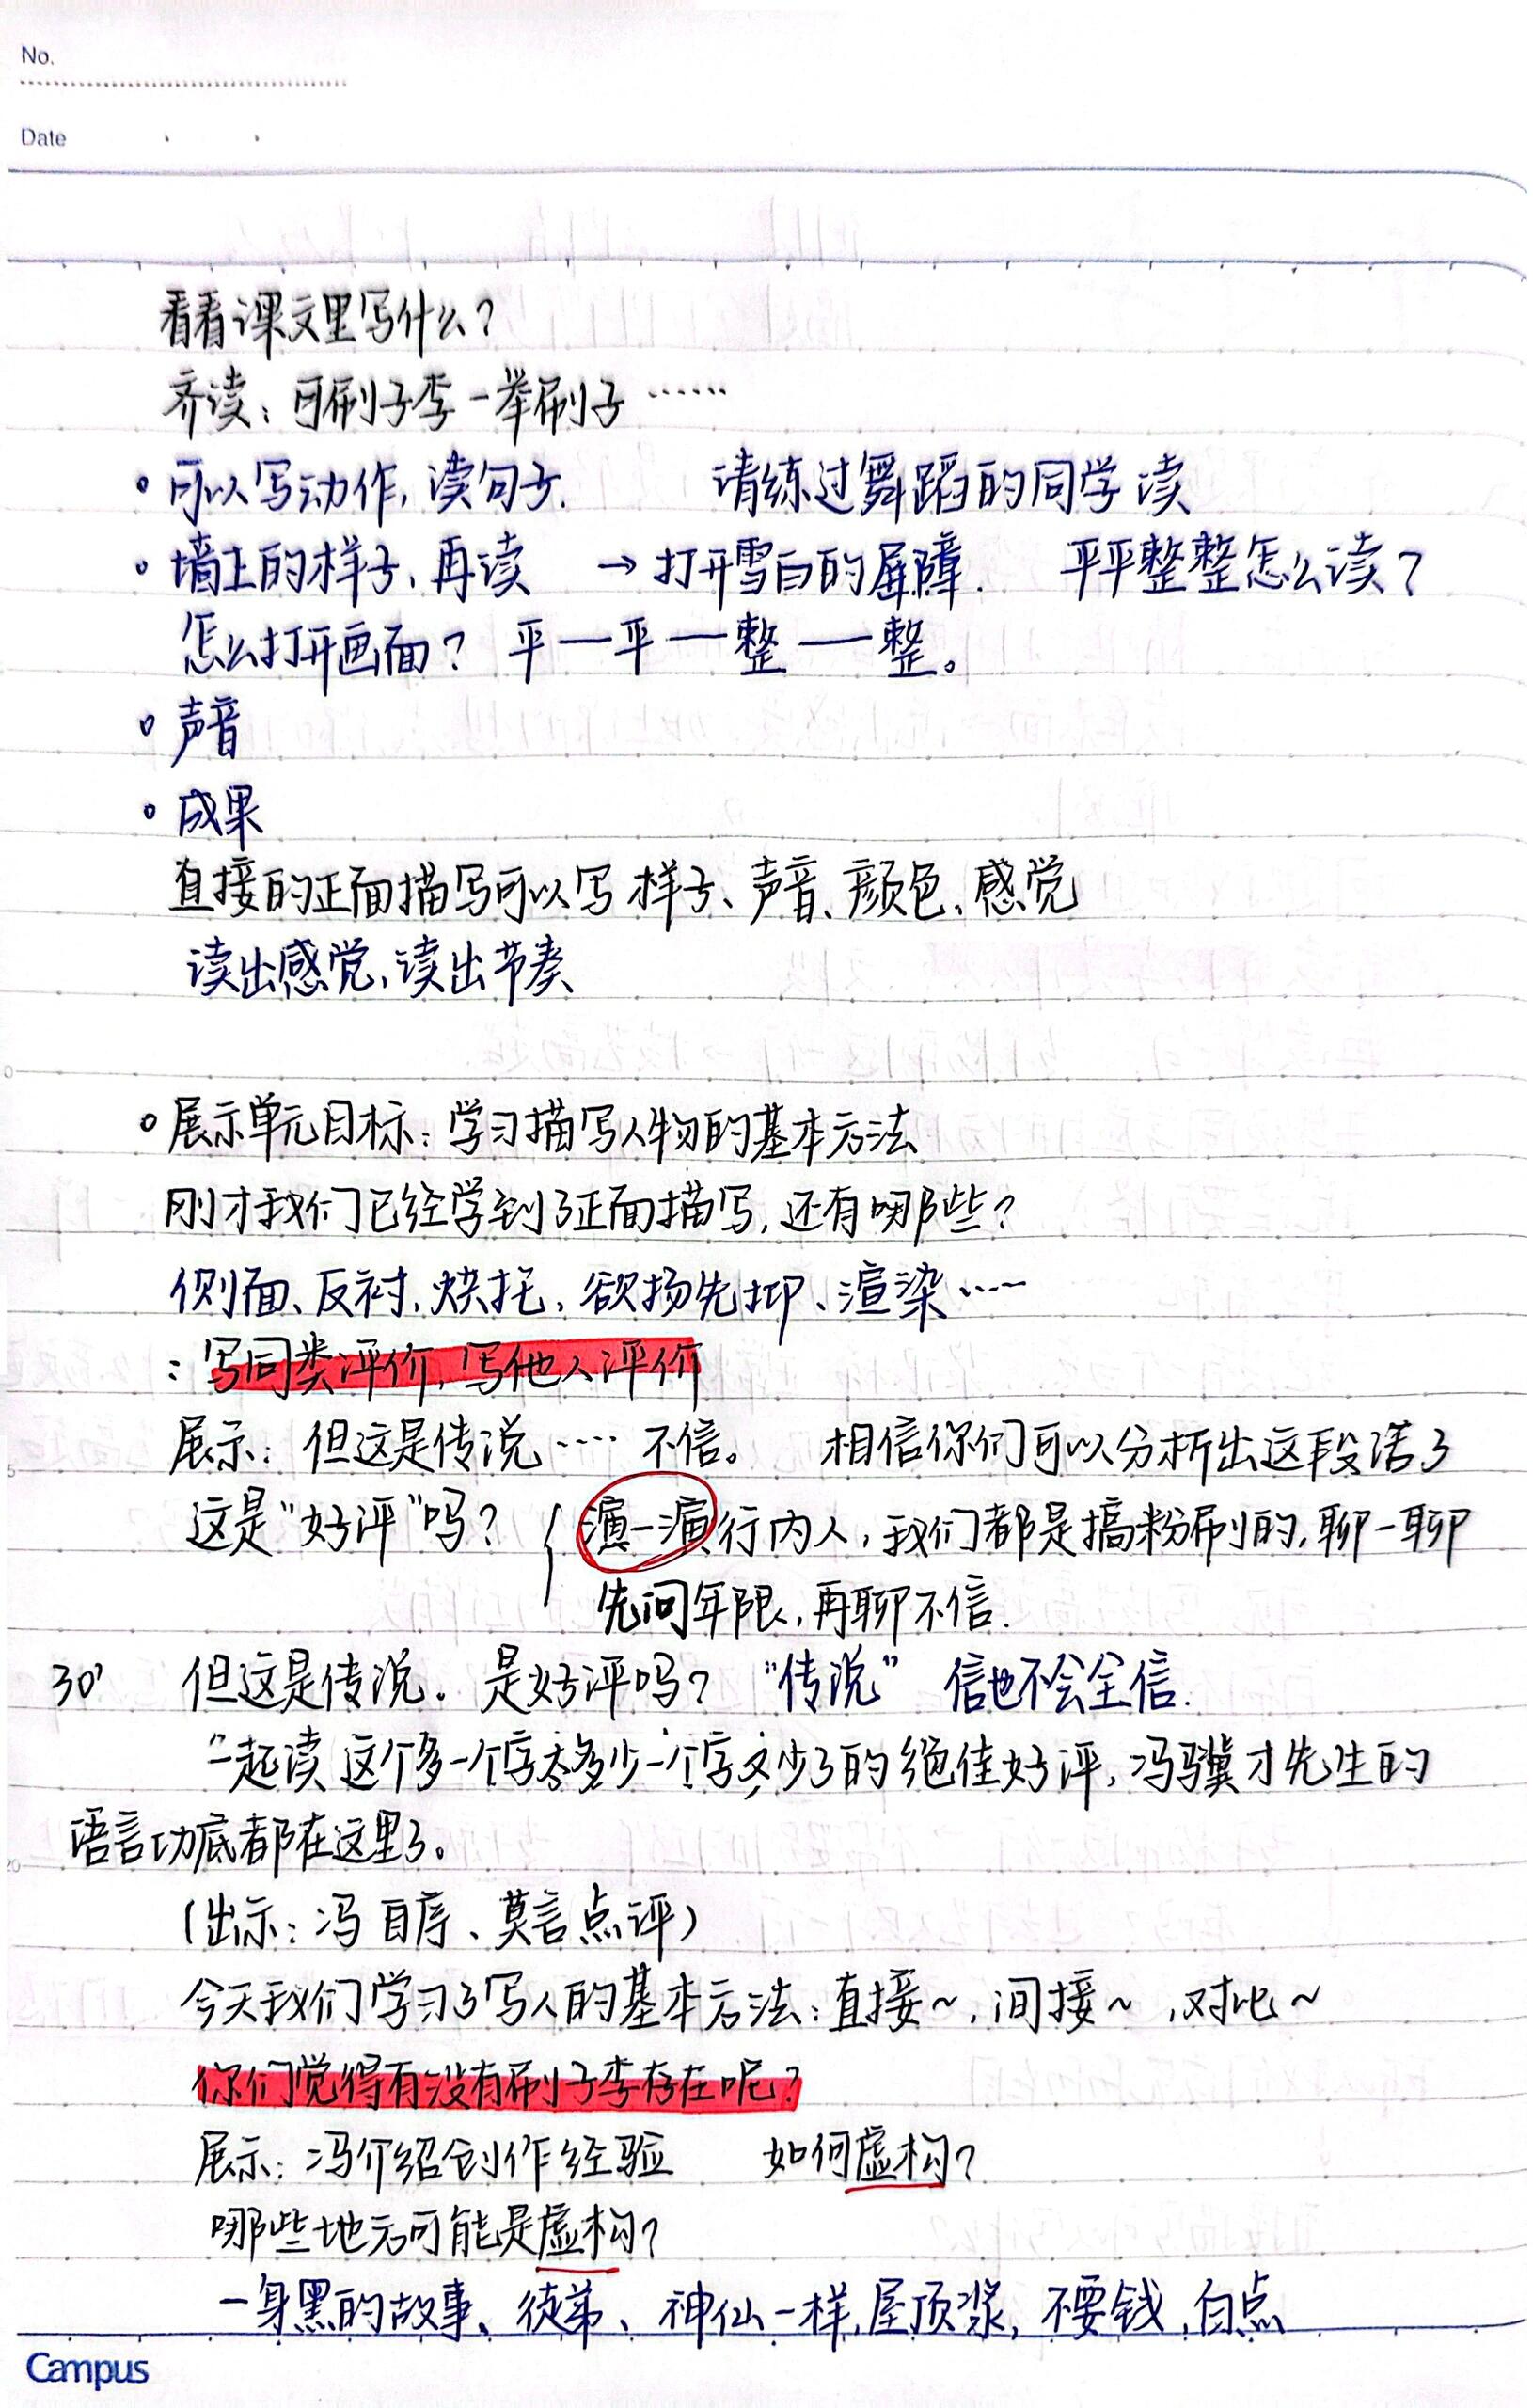 No.
Date
看看课文里写什么？
齐读：可刷子李一举刷子……
。可以写动作，读句子.　请练过舞蹈的同学读
。墙上的样子，再读　→打开雪白的屏障.　平平整整怎么读？
怎么打开画面？平—平—整—整。
。声音
。成果
直接的正面描写可以写样子、声音、颜色、感觉
读出感觉，读出节奏
。展示单元目标：学习描写人物的基本方法
刚才我们已经学到了正面描写，还有哪些？
侧面、反衬，烘托，欲扬先抑、渲染……
：写同类评价，写他人评价
展示：但这是传说……不信。　相信你们可以分析出这段话了
这是“好评”吗？｛演一演行内人，我们都是搞粉刷的，聊一聊
先问年限，再聊不信.
30′　但这是传说。是好评吗？“传说”　信也不会全信.
一起读这个多一个字太多少一个字又少了的绝佳好评，冯骥才先生的
语言功底都在这里了。
（出示：冯自序、莫言点评）
今天我们学习了写人的基本方法：直接～，间接～，对比～
你们觉得有没有刷子李存在呢？
展示：冯介绍创作经验　如何虚构？
哪些地方可能是虚构？
一身黑的故事、徒弟、神仙一样，屋顶浆，不要钱，白点
Campus